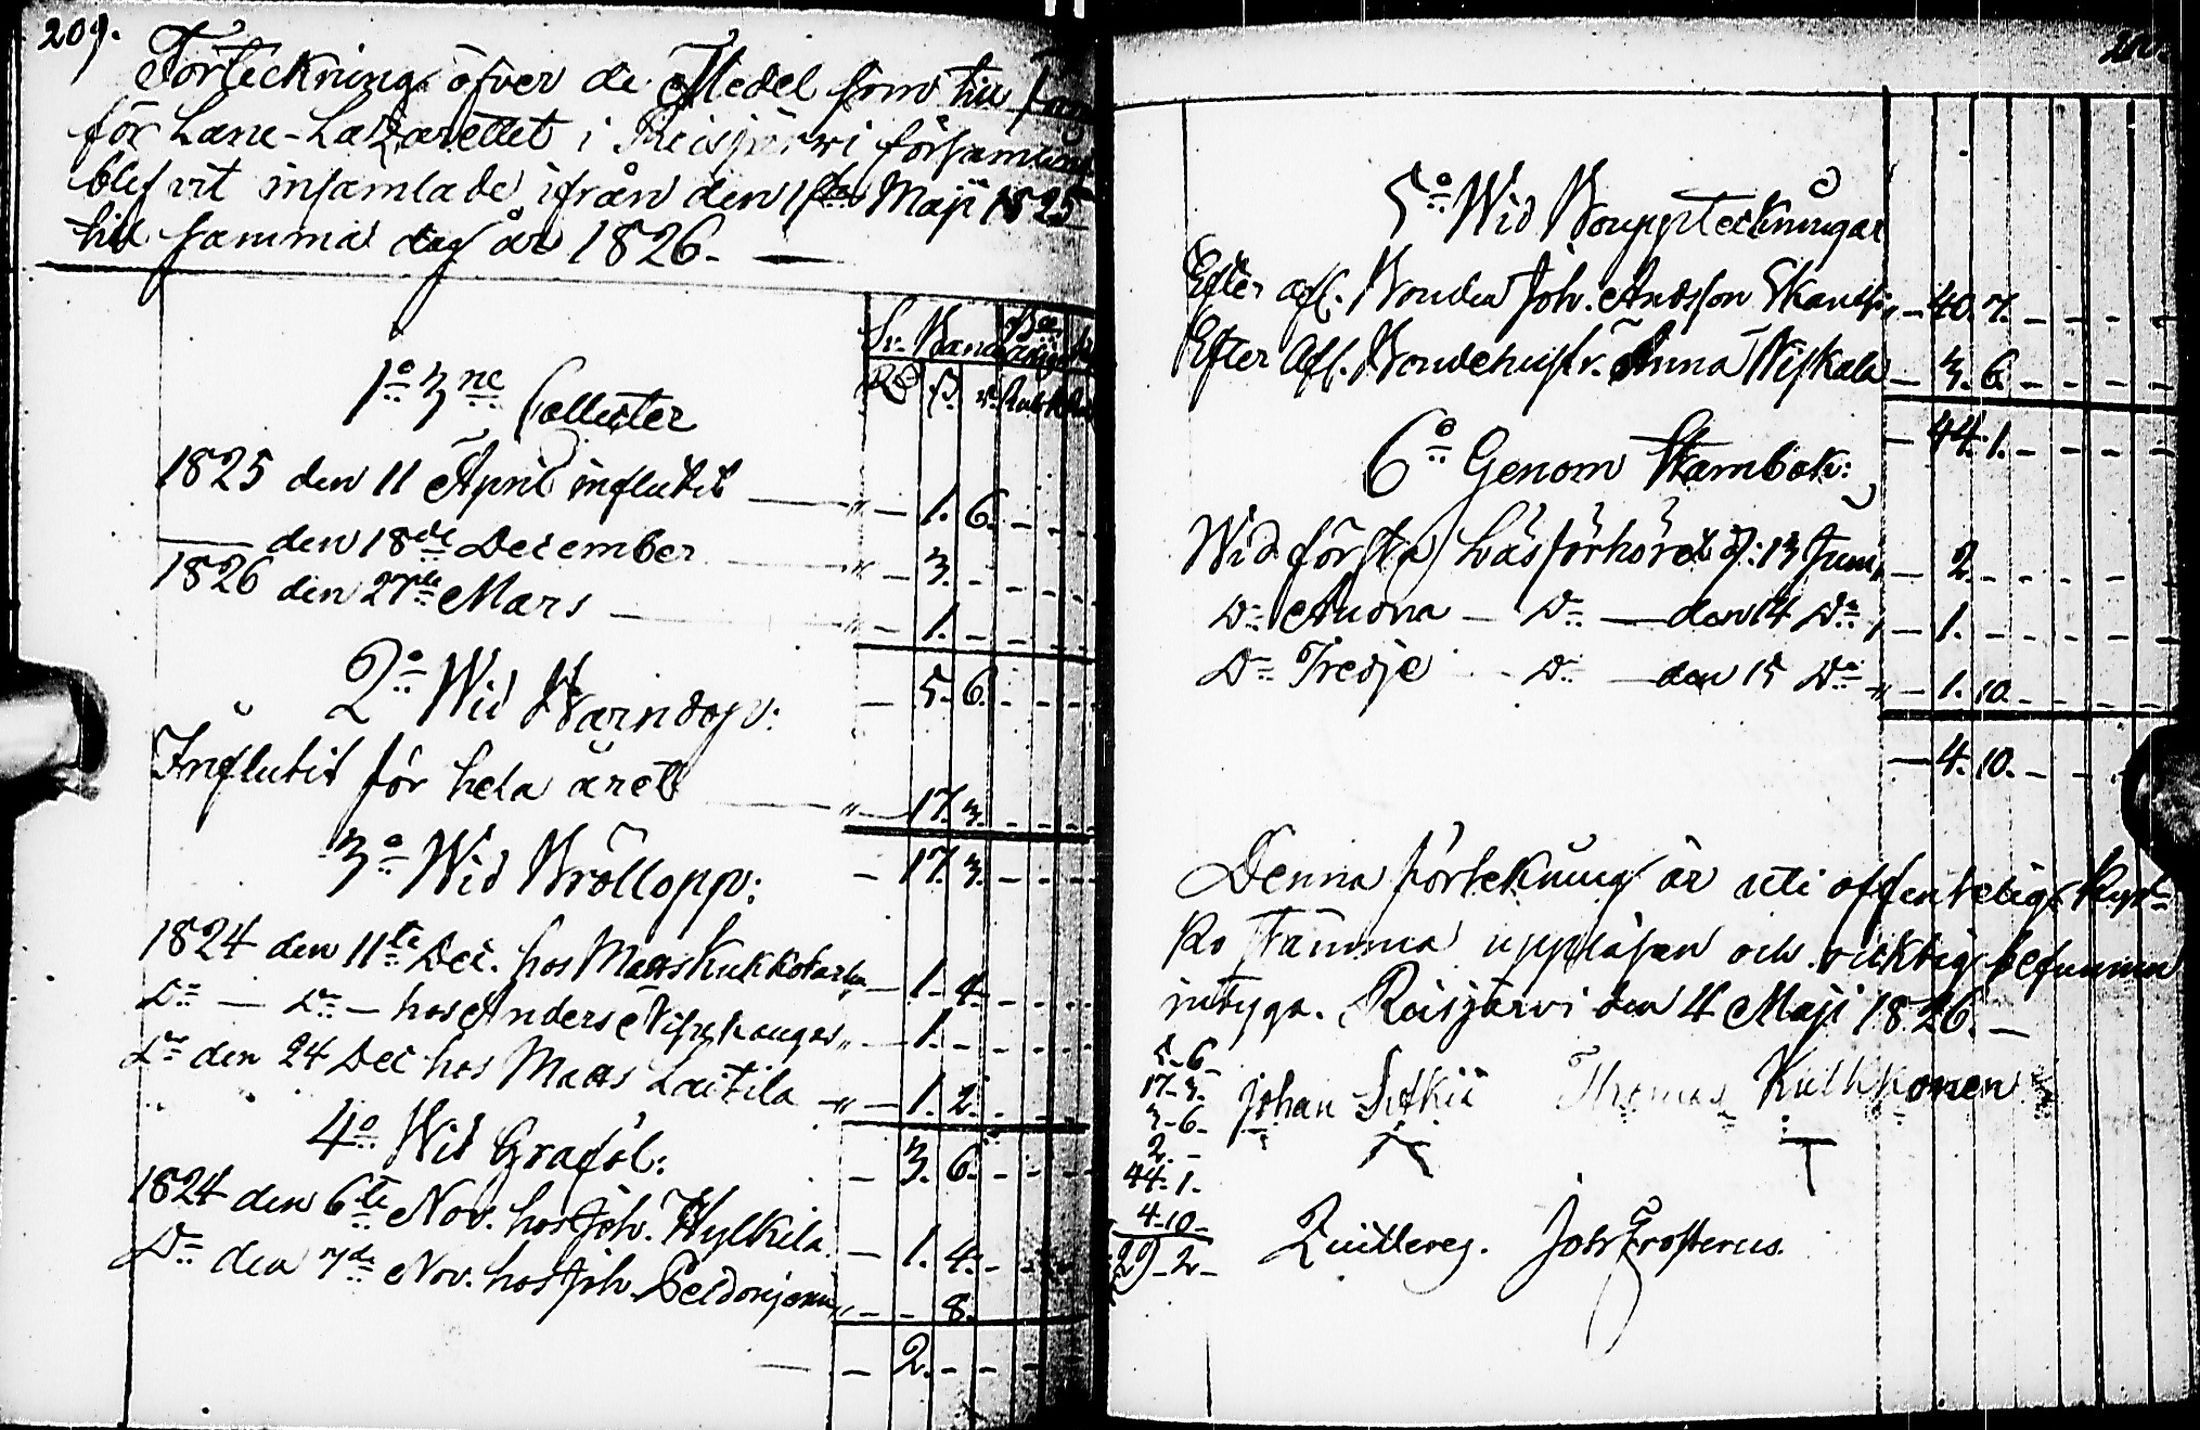 209.
Förteckning öfver de Medel som till
för Läne-Lazarettet i Reisjerwi församling
blefvit insamlade ifrån den 1sta Maji 1825
till samma dag år 1826. —
Sv. Banco
Rd ß. r. Rub.
1o 3ne Collecter
1825 den 11 April influtit — " — 1. 6. - -
— den 18de December — " — 3. - - -
1826 den 27de Mars — " — 1. - - -
— 5. 6. - -
2o Wid Barndop:
Influtit för hela året — " — 17. 3. - - -
3o Wid Bröllopp:
— 17. 3. - - -
1824 den 11te Dec. hos Matts — 1. 4. - - -
Do — Do — hos Anders " — 1. - - - -
Do den 24 Dec hos Matts Laitila — " — 1. 2. - -
4o Wid Grafol:
— 3. 6. - - -
1824 den 6te Nov. hos Joh. Hylkilä — 1. 4. - -
Do den 7de Nov. hos Joh. " — - 8.
— — 2. - - -
210.
5o Wid Bouppteckningar
Efter afl. Bonden Joh. Andsson — 40. 7. - - - -
Efter Afl. Bondehustr. Anna Niskala — 3. 6. - - - -
— 44. 1. - - - -
6o Genom Stambok:
Wid första Läsförhöret d: 13 Juni — 2. - - - -
Do Andra — Do — den 14 Do — 1. - - - -
Do Tredje — Do — den 15 Do " — 1. 10. - - -
— 4. 10. - - -
Denna förtekning är uti offentelig Kyr-
ko stämma uppläsen och riktig befunnen
intyga. Reisjärvi den 4 Maji 1826. —
5-6-
17-3.
3-6-
2. -
44-1-
4-10-
29-2-
Johan Thomas
Joh Frosterus.